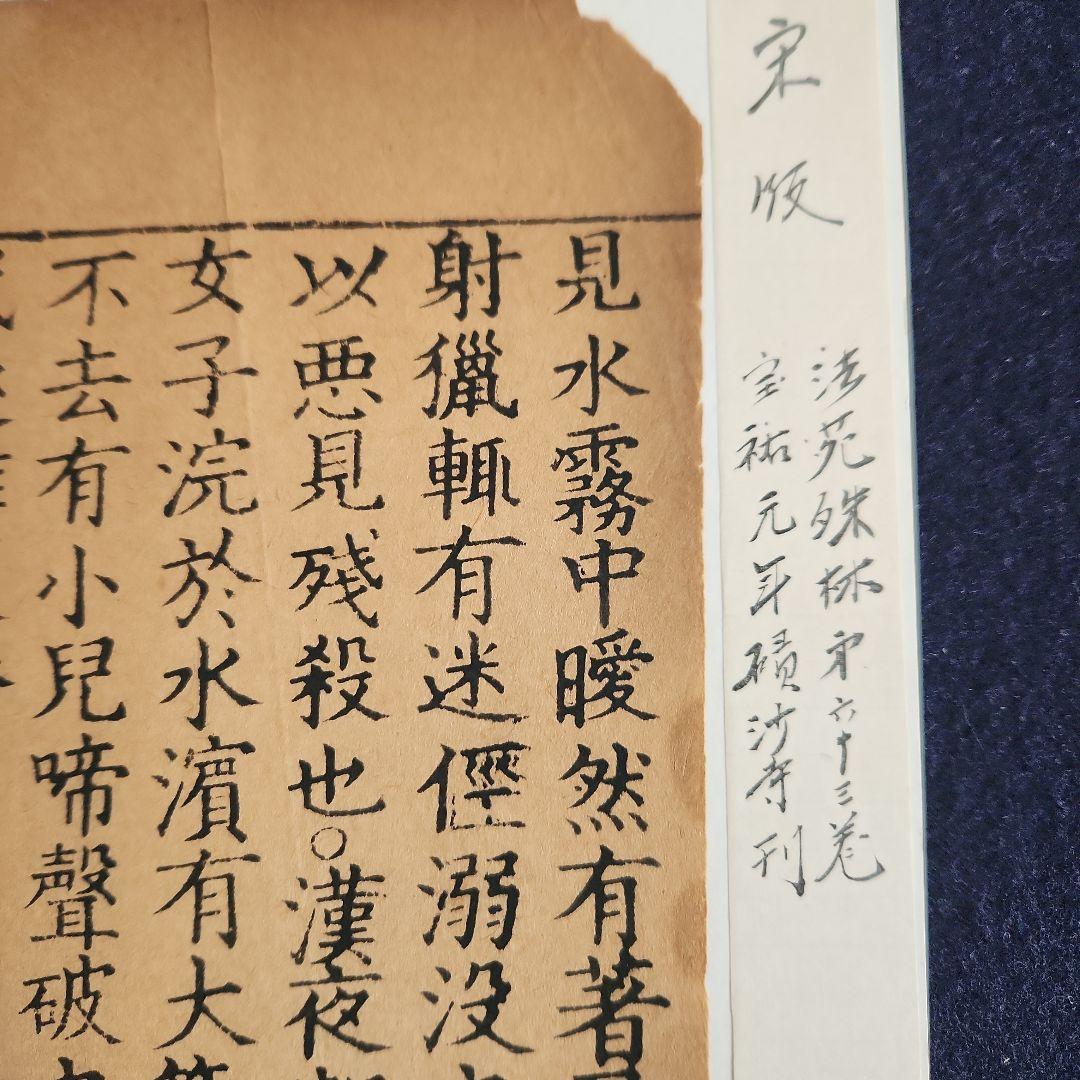 宋版
法苑珠林第六十三卷
宝祐元年磧沙寺刊
見水霧中曖然有著
射獵輙有迷徑溺没
以惡見殘殺也○漢夜
女子浣於水濵有大
不去有小兒啼聲破